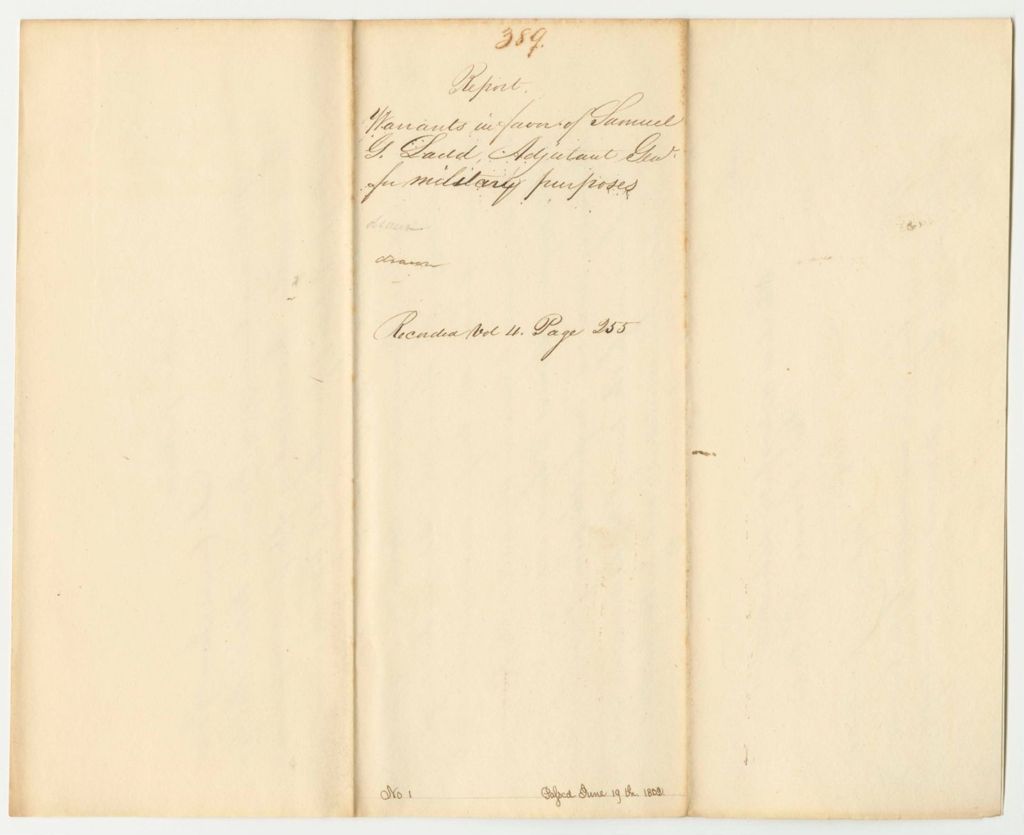 389.
Report.
Warrants in favor of Samuel
G. Ladd, Adjutant Genl.
for military purposes
drawn
drawn
Recorded Vol 4. Page 255
No 1
June 19